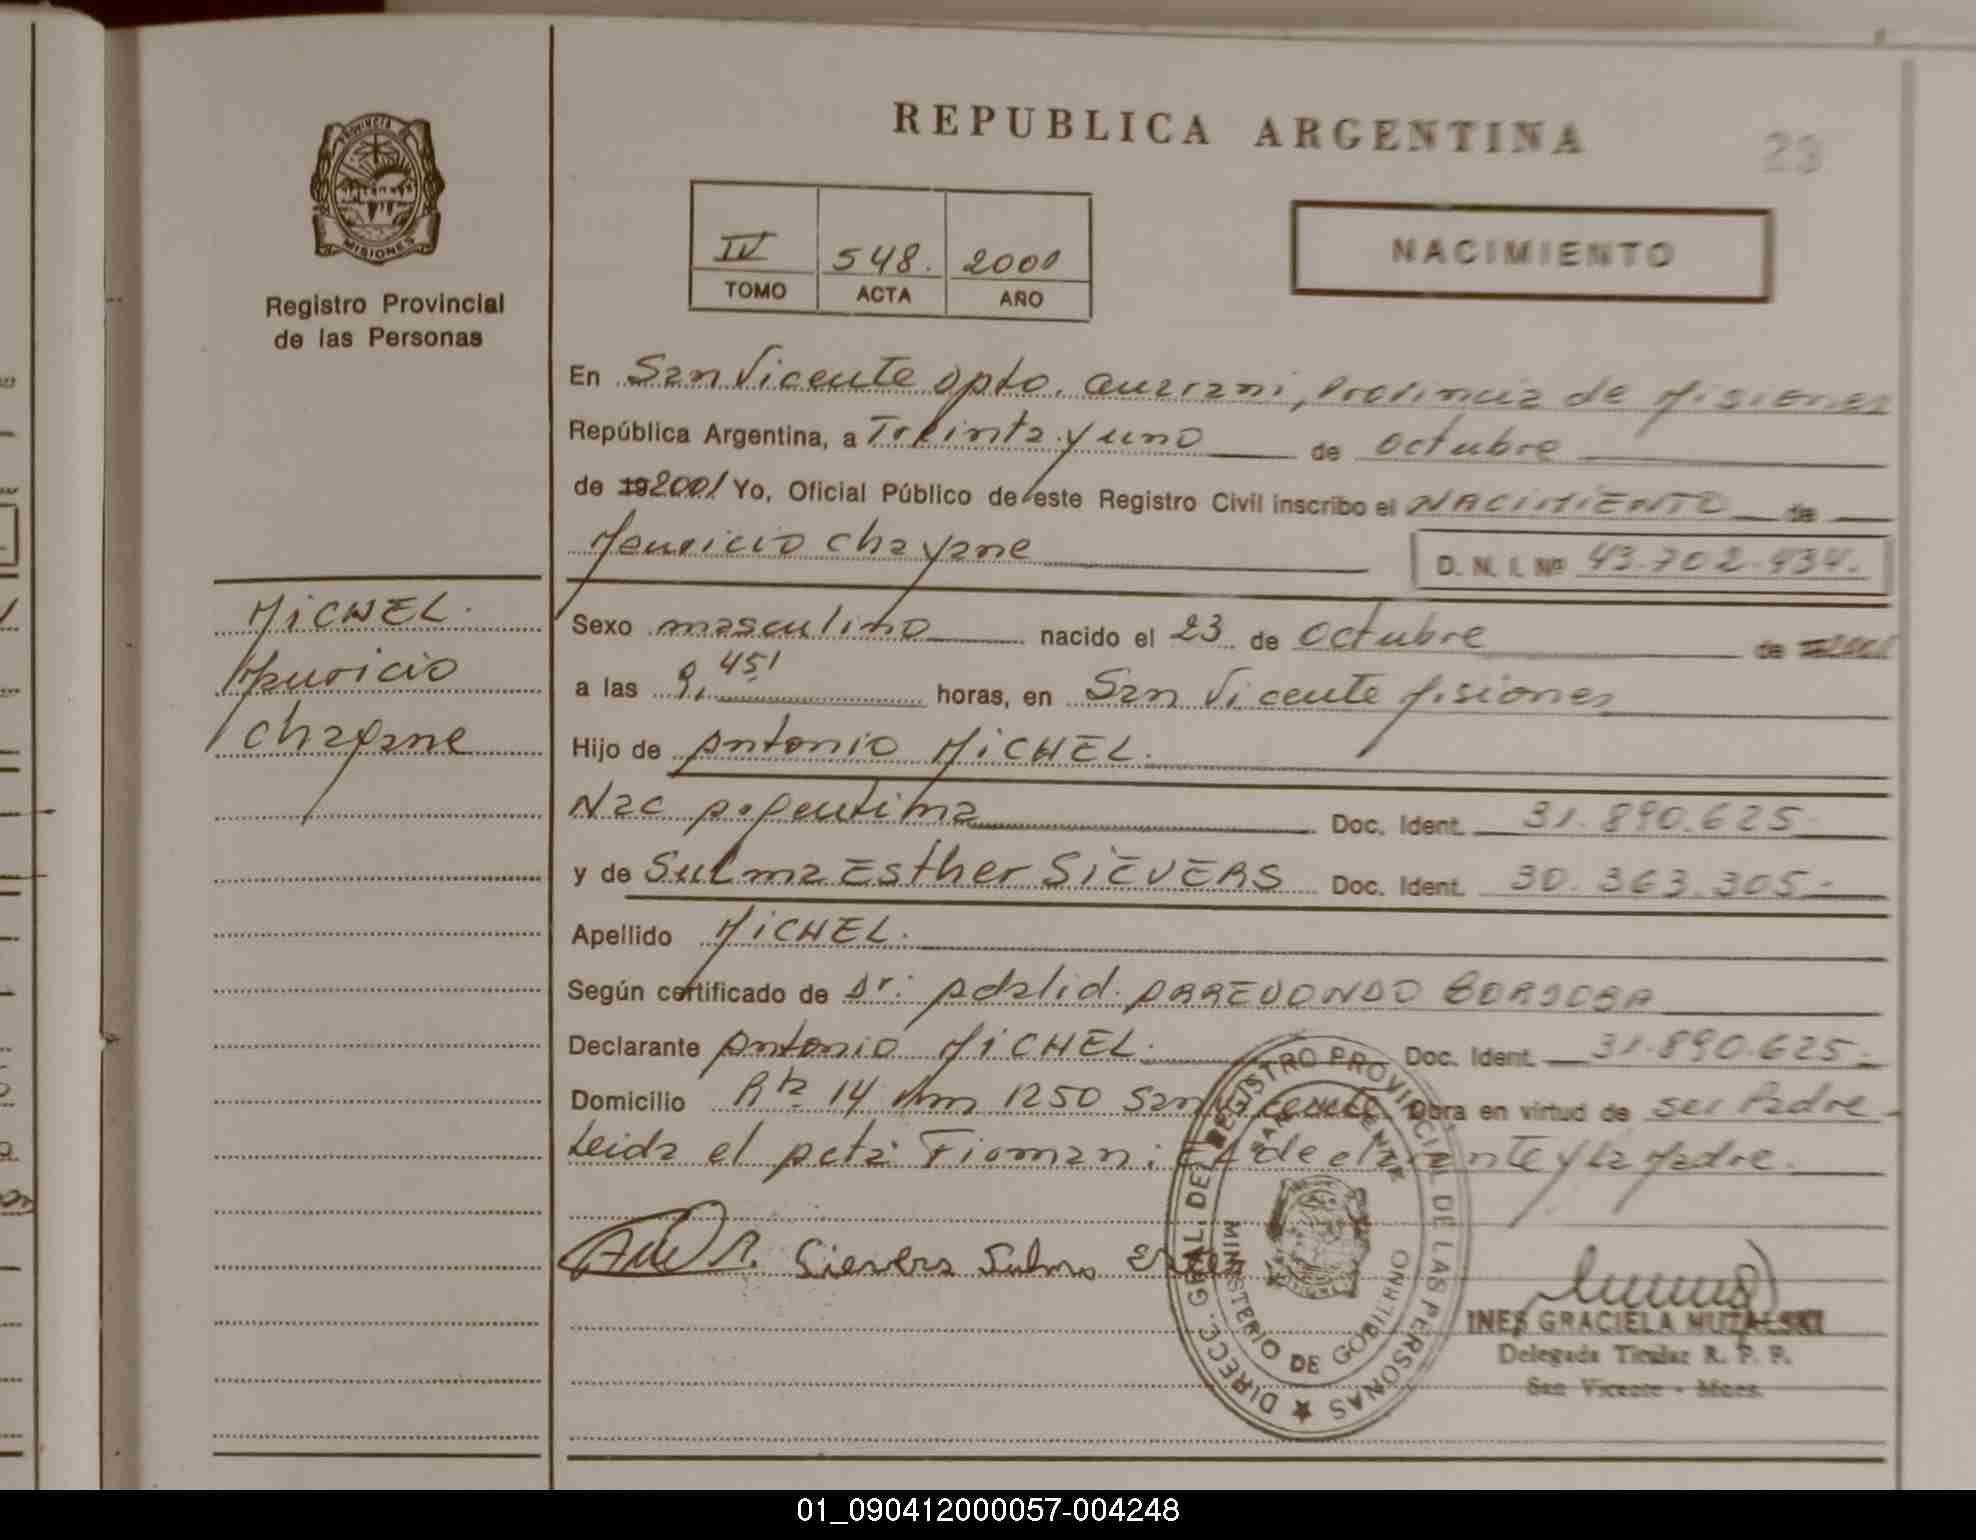 REPUBLICA ARGENTINA
23
PROVINCIA
MISIONES
Registro Provincial
de las Personas
IV 548. 2001
TOMO ACTA AÑO
NACIMIENTO
En San Vicente Dpto. Guarani, Provincia de Misiones
República Argentina, a Treinta y uno de octubre
de 192001 Yo, Oficial Público de este Registro Civil inscribo el NACIMIENTO de
Mauricio Chayane D. N. I. Nº 43.702.434.
MICHEL.
Mauricio
Chayane
Sexo masculino nacido el 23 de octubre de
a las 9,45' horas, en San Vicente Misiones
Hijo de Antonio MICHEL.
Nac Argentina Doc. Ident. 31.890.625
y de Sulma Esther SIEVERS Doc. Ident. 30.363.305-
Apellido MICHEL.
Según certificado de Dr: Adalid ARREDONDO BORJOBA
Declarante Antonio MICHEL. Doc. Ident. 31.890.625-
Domicilio Rta 14 Km 1250 San Vicente Obra en virtud de ser Padre-
Leida el acta Firman: El declarante y la Madre.
Sievers Sulma Ester
DIRECC. GRAL. DEL REGISTRO PROVINCIAL DE LAS PERSONAS
SAN VICENTE
MINISTERIO DE GOBIERNO
INES GRACIELA MUZALSKI
Delegada Titular R. P. P.
San Vicente - Mnes.
01_090412000057-004248